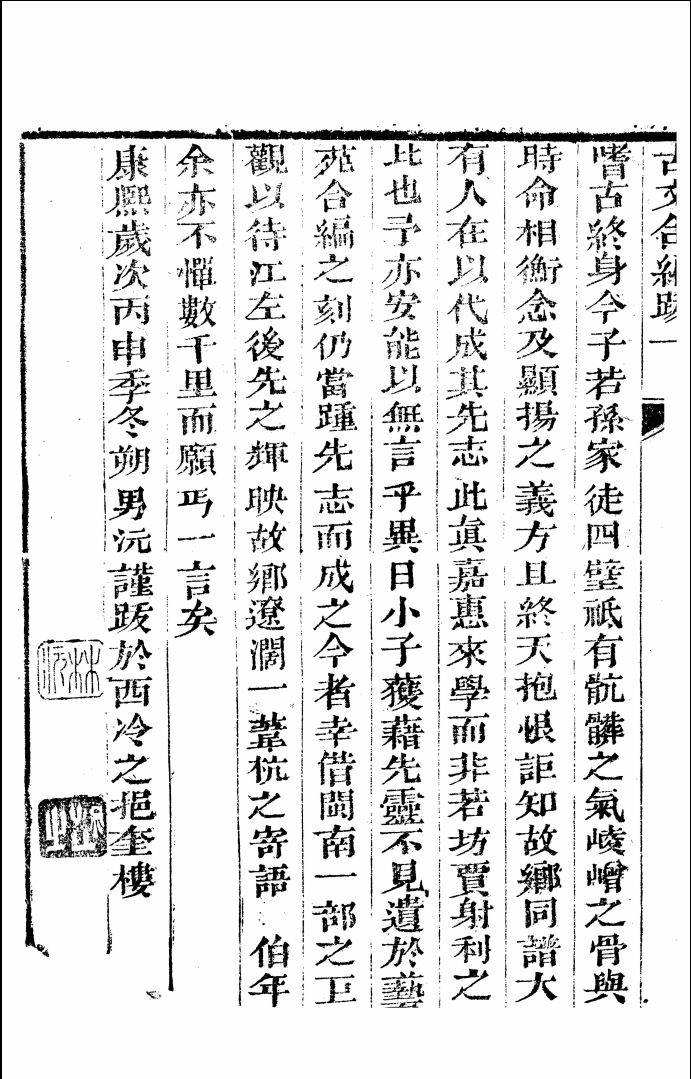 古文合編跋一
嗜古終身今子若孫家徒四壁祇有骯髒之氣崚嶒之骨與
時命相衡念及顯揚之義方且終天抱恨詎知故鄉同譜大
有人在以代成其先志此眞嘉惠來學而非若坊賈射利之
比也予亦安能以無言乎異日小子獲藉先靈不見遺於藝
苑合編之刻仍當踵先志而成之今者幸借閩南一部之
觀以待江左後先之輝映故鄉遼濶一葦杭之寄語 伯年
余亦不憚數千里而願丐一言矣
康熙歲次丙申季冬朔 男沅謹跋於西冷之挹奎樓
林沅